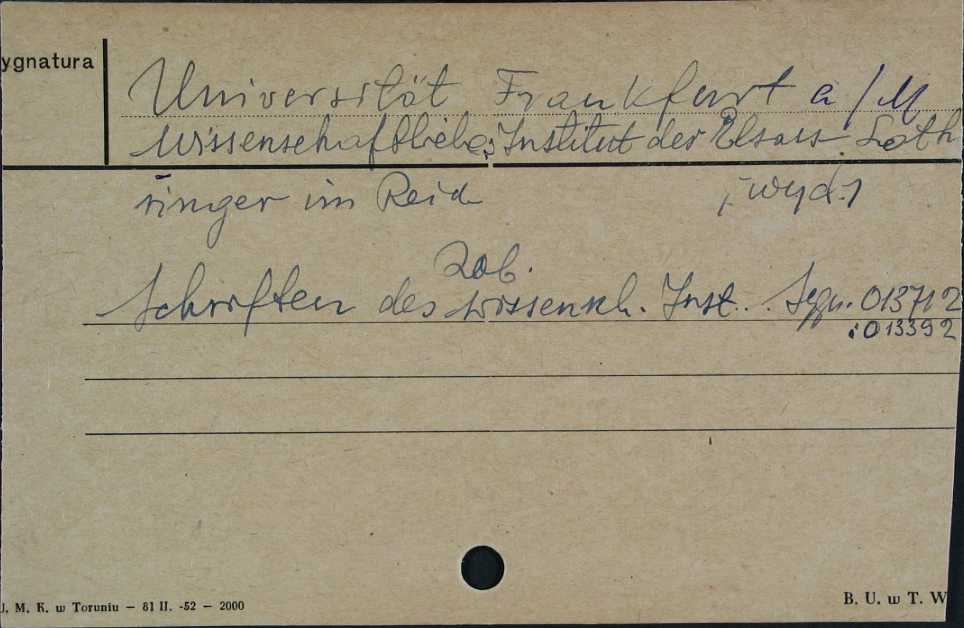 ygnatura
Universität Frankfurt a/M
Wissenschaftliches Institut der Elsass Loth
ringer im Reich [wyd.]
Zob.
Schriften des wissensch. Inst... Sygn. 013712
i 013392
U. M. K. w Toruniu — 81 II. -52 — 2000
B. U. w T. W